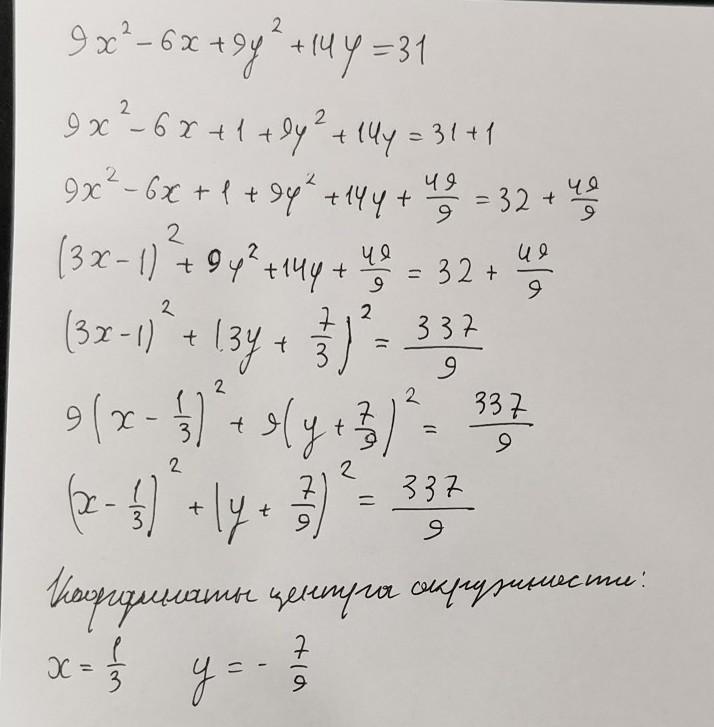 9x² - 6x + 9y² + 14y = 31
9x² - 6x + 1 + 9y² + 14y = 31 + 1
9x² - 6x + 1 + 9y² + 14y + 49/9 = 32 + 49/9
(3x - 1)² + 9y² + 14y + 49/9 = 32 + 49/9
(3x - 1)² + (3y + 7/3)² = 337/9
9(x - 1/3)² + 9(y + 7/9)² = 337/9
(x - 1/3)² + (y + 7/9)² = 337/9
Координаты центра окружности:
x = 1/3 y = - 7/9